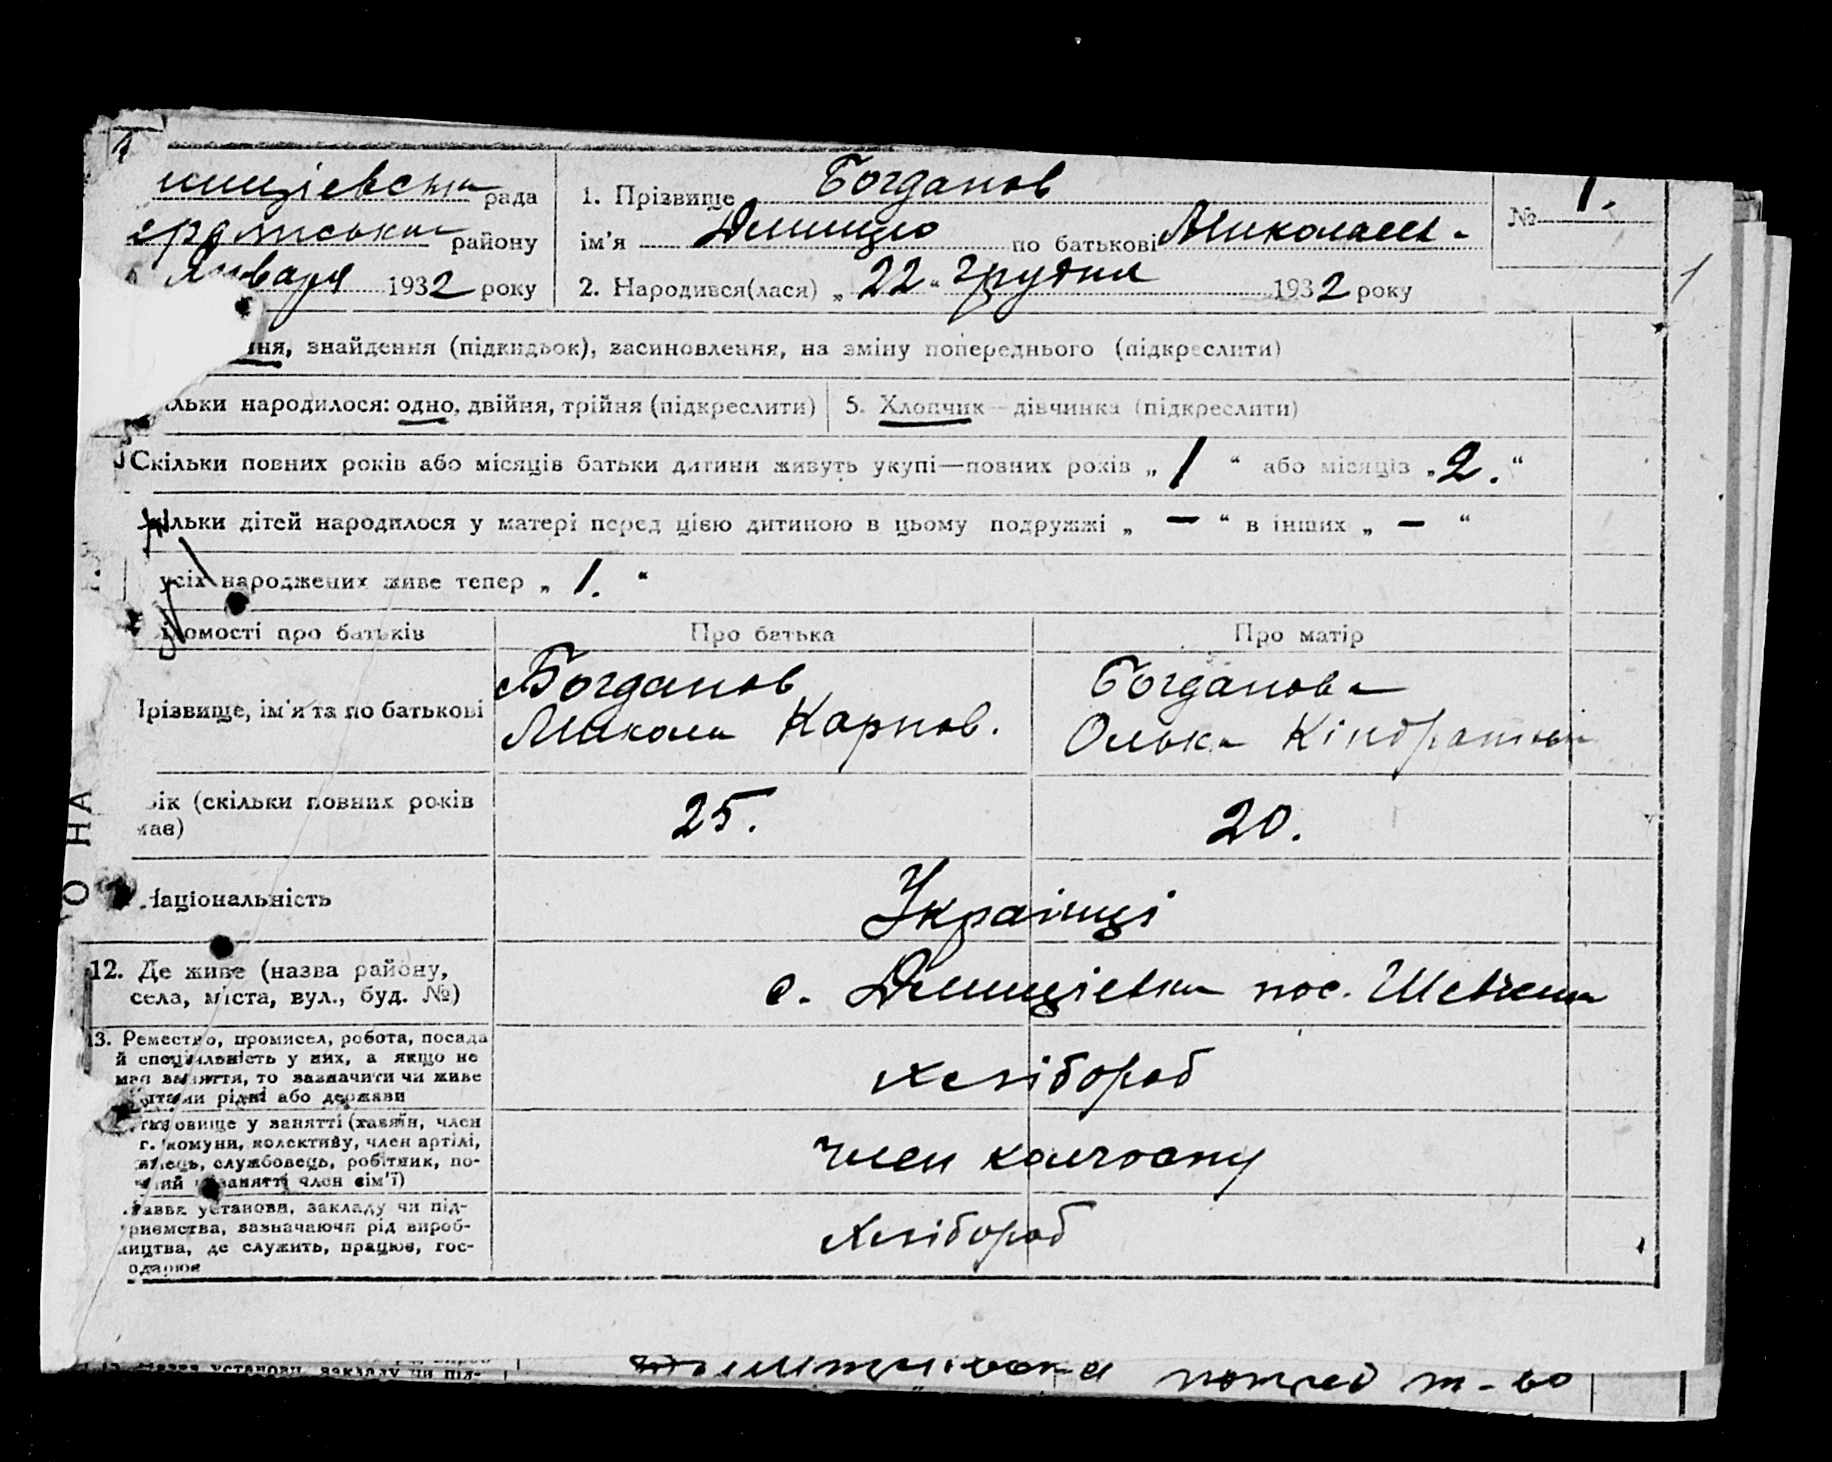 рада
району
Января 1932 року
1. Прізвище Богданов
ім'я Дмитро по батькові Миколаєв.
2. Народився(лася) „22" грудня 1932 року
№ 1.
1
ння, знайдення (підкидьок), засиновлення, на зміну попереднього (підкреслити)
ільки народилося: одно, двійня, трійня (підкреслити)
5. Хлопчик—дівчинка (підкреслити)
Скільки повних років або місяців батьки дитини живуть укупі—повних років „1" або місяців „2."
ільки дітей народилося у матері перед цією дитиною в цьому подружжі „—" в інших „—"
усіх народжених живе тепер „1."
омості про батьків
Про батька
Про матір
різвище, ім'я та по батькові
Богданов
Микола Карпов.
Богданова
Олька
ік (скільки повних років
має)
25.
20.
Національність
Українці
12. Де живе (назва району,
села, міста, вул., буд. №)
с. Дмитрієвка пос. Шевченка
13. Ремество, промисел, робота, посада
й спеціяльність у них, а якщо не
має заняття, то зазначити чи живе
штами рідні або держави
хлібороб
овище у занятті (хазяїн, член
г. комуни, колективу, член артілі,
службовець, робітник, по-
занятті член сім'ї)
член колгоспу
азва установи, закладу чи під-
приємства, зазначаючи рід вироб-
ництва, де служить, працює, гос-
одарює
хлібороб
О НА
азва установи, закладу чи під-
т-во